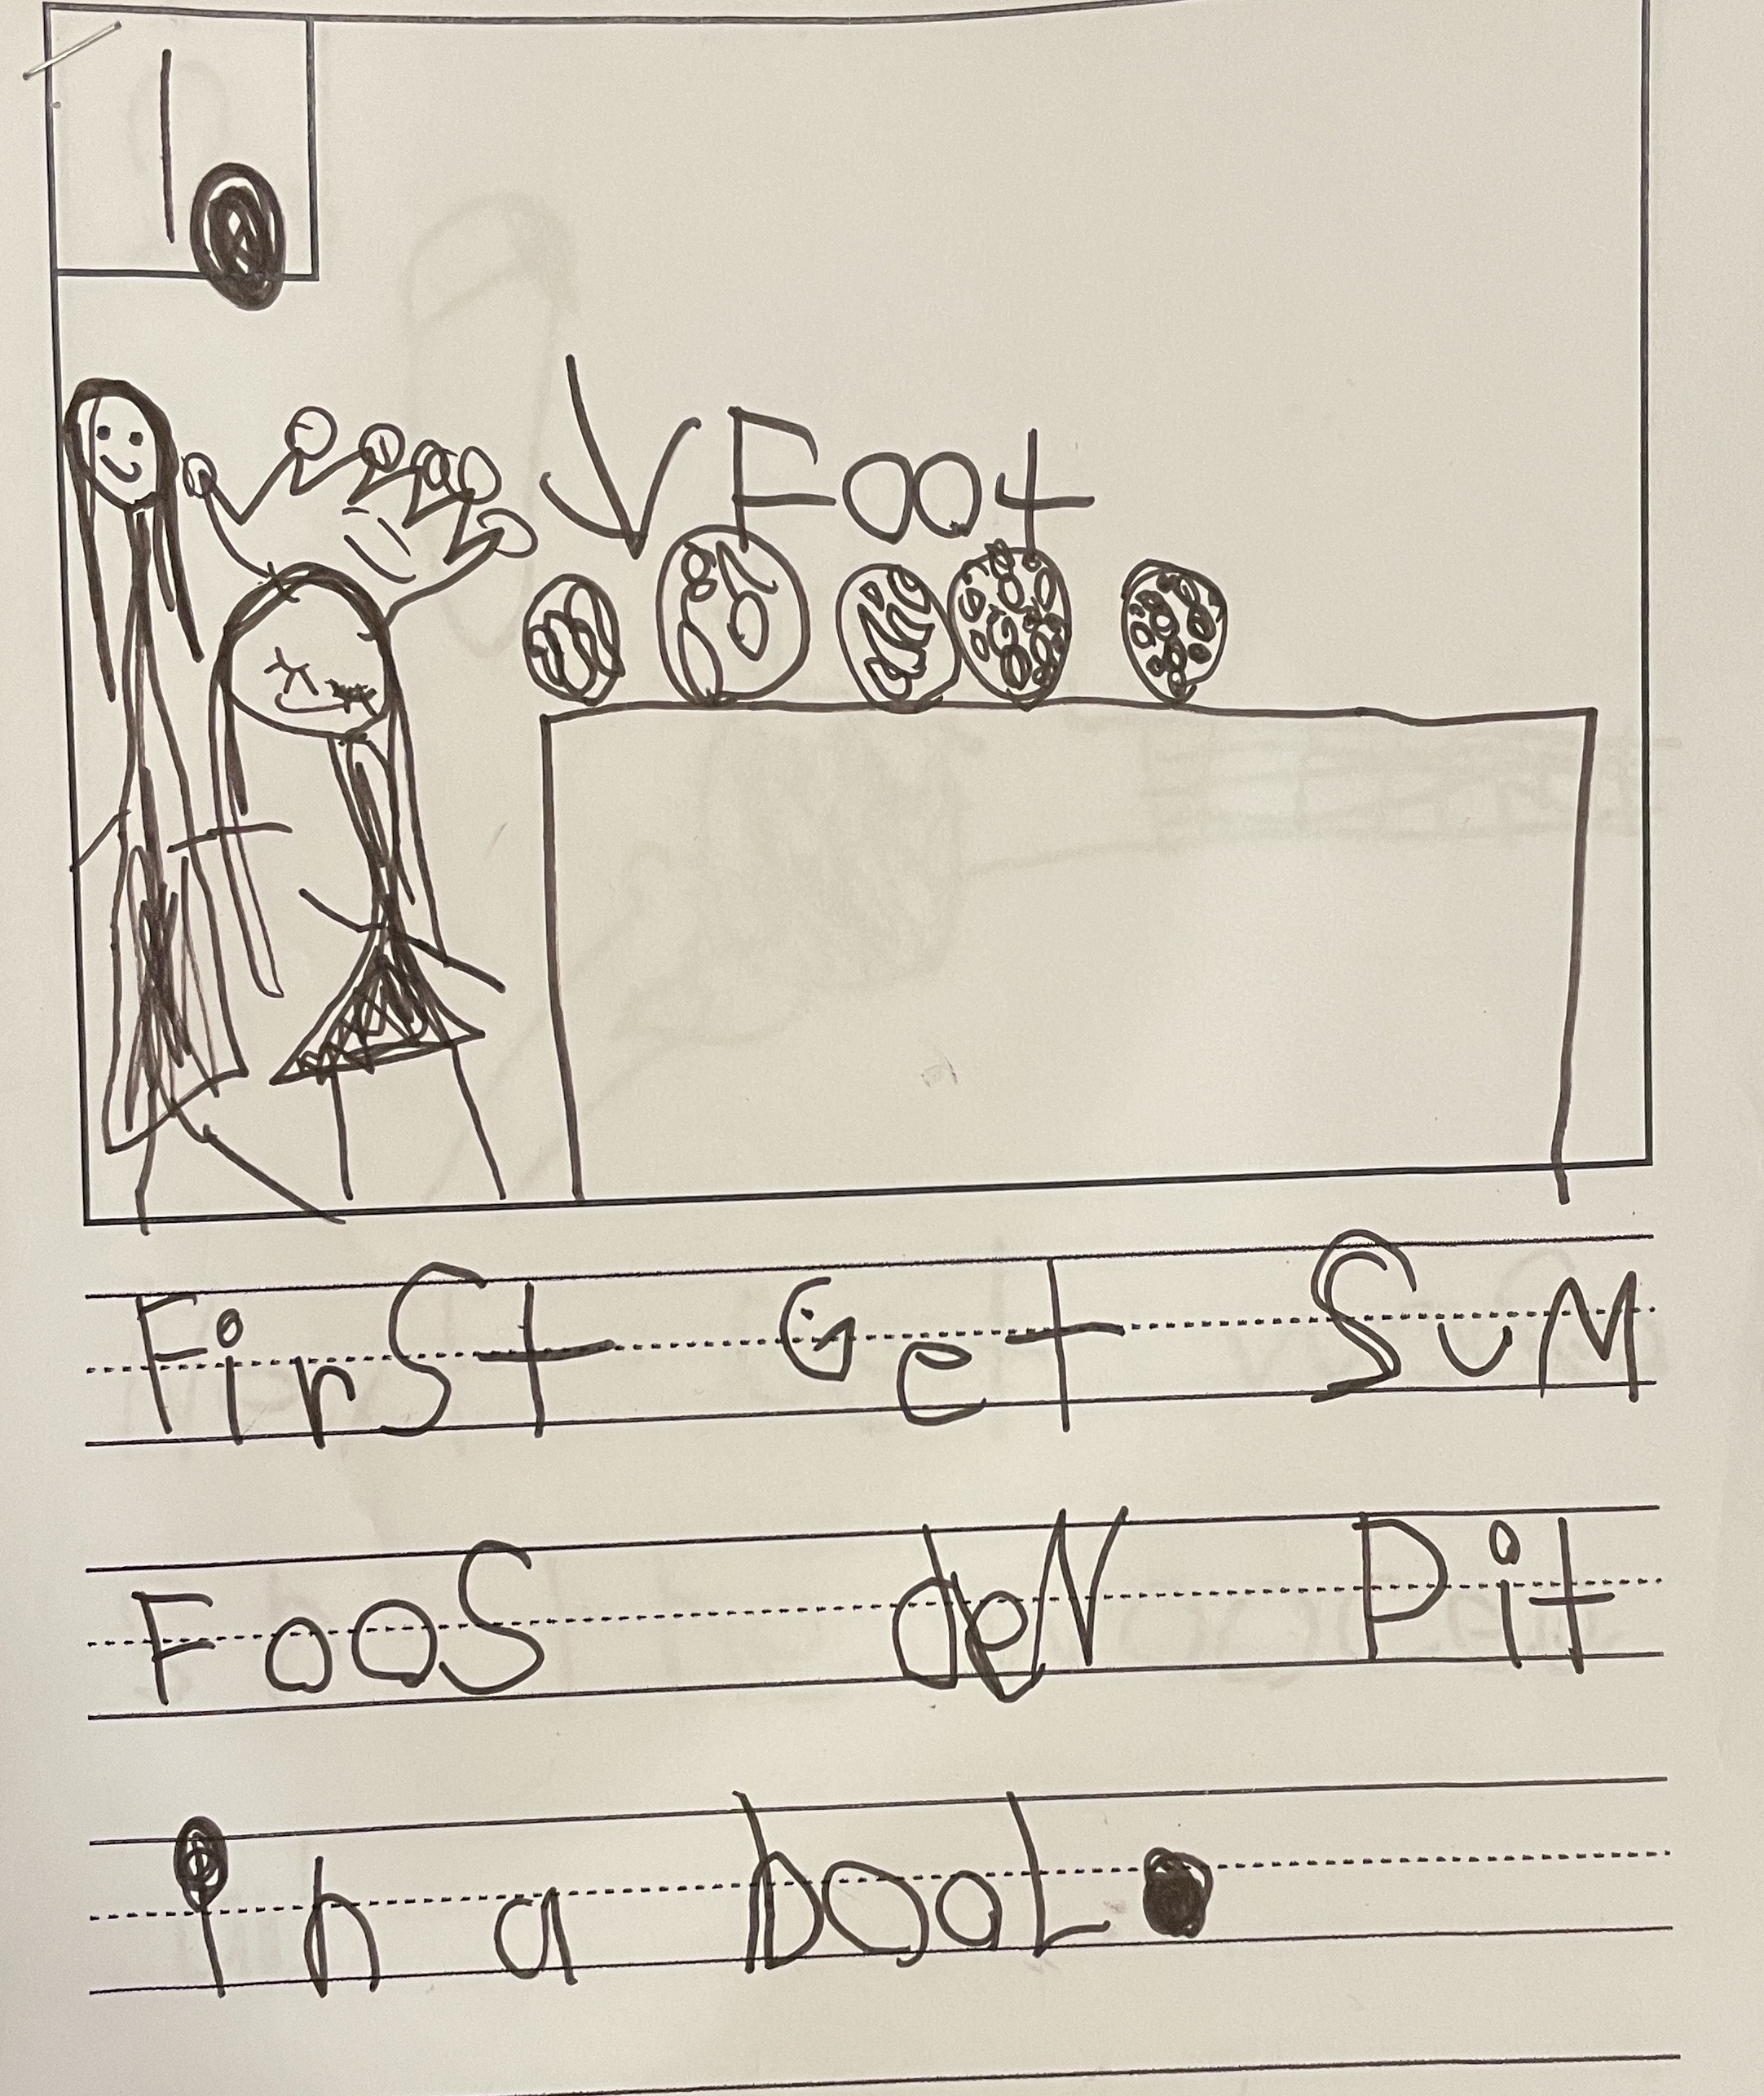 1.
↓ Foot
First Get SuM
FooS deN Pit
in a booL.